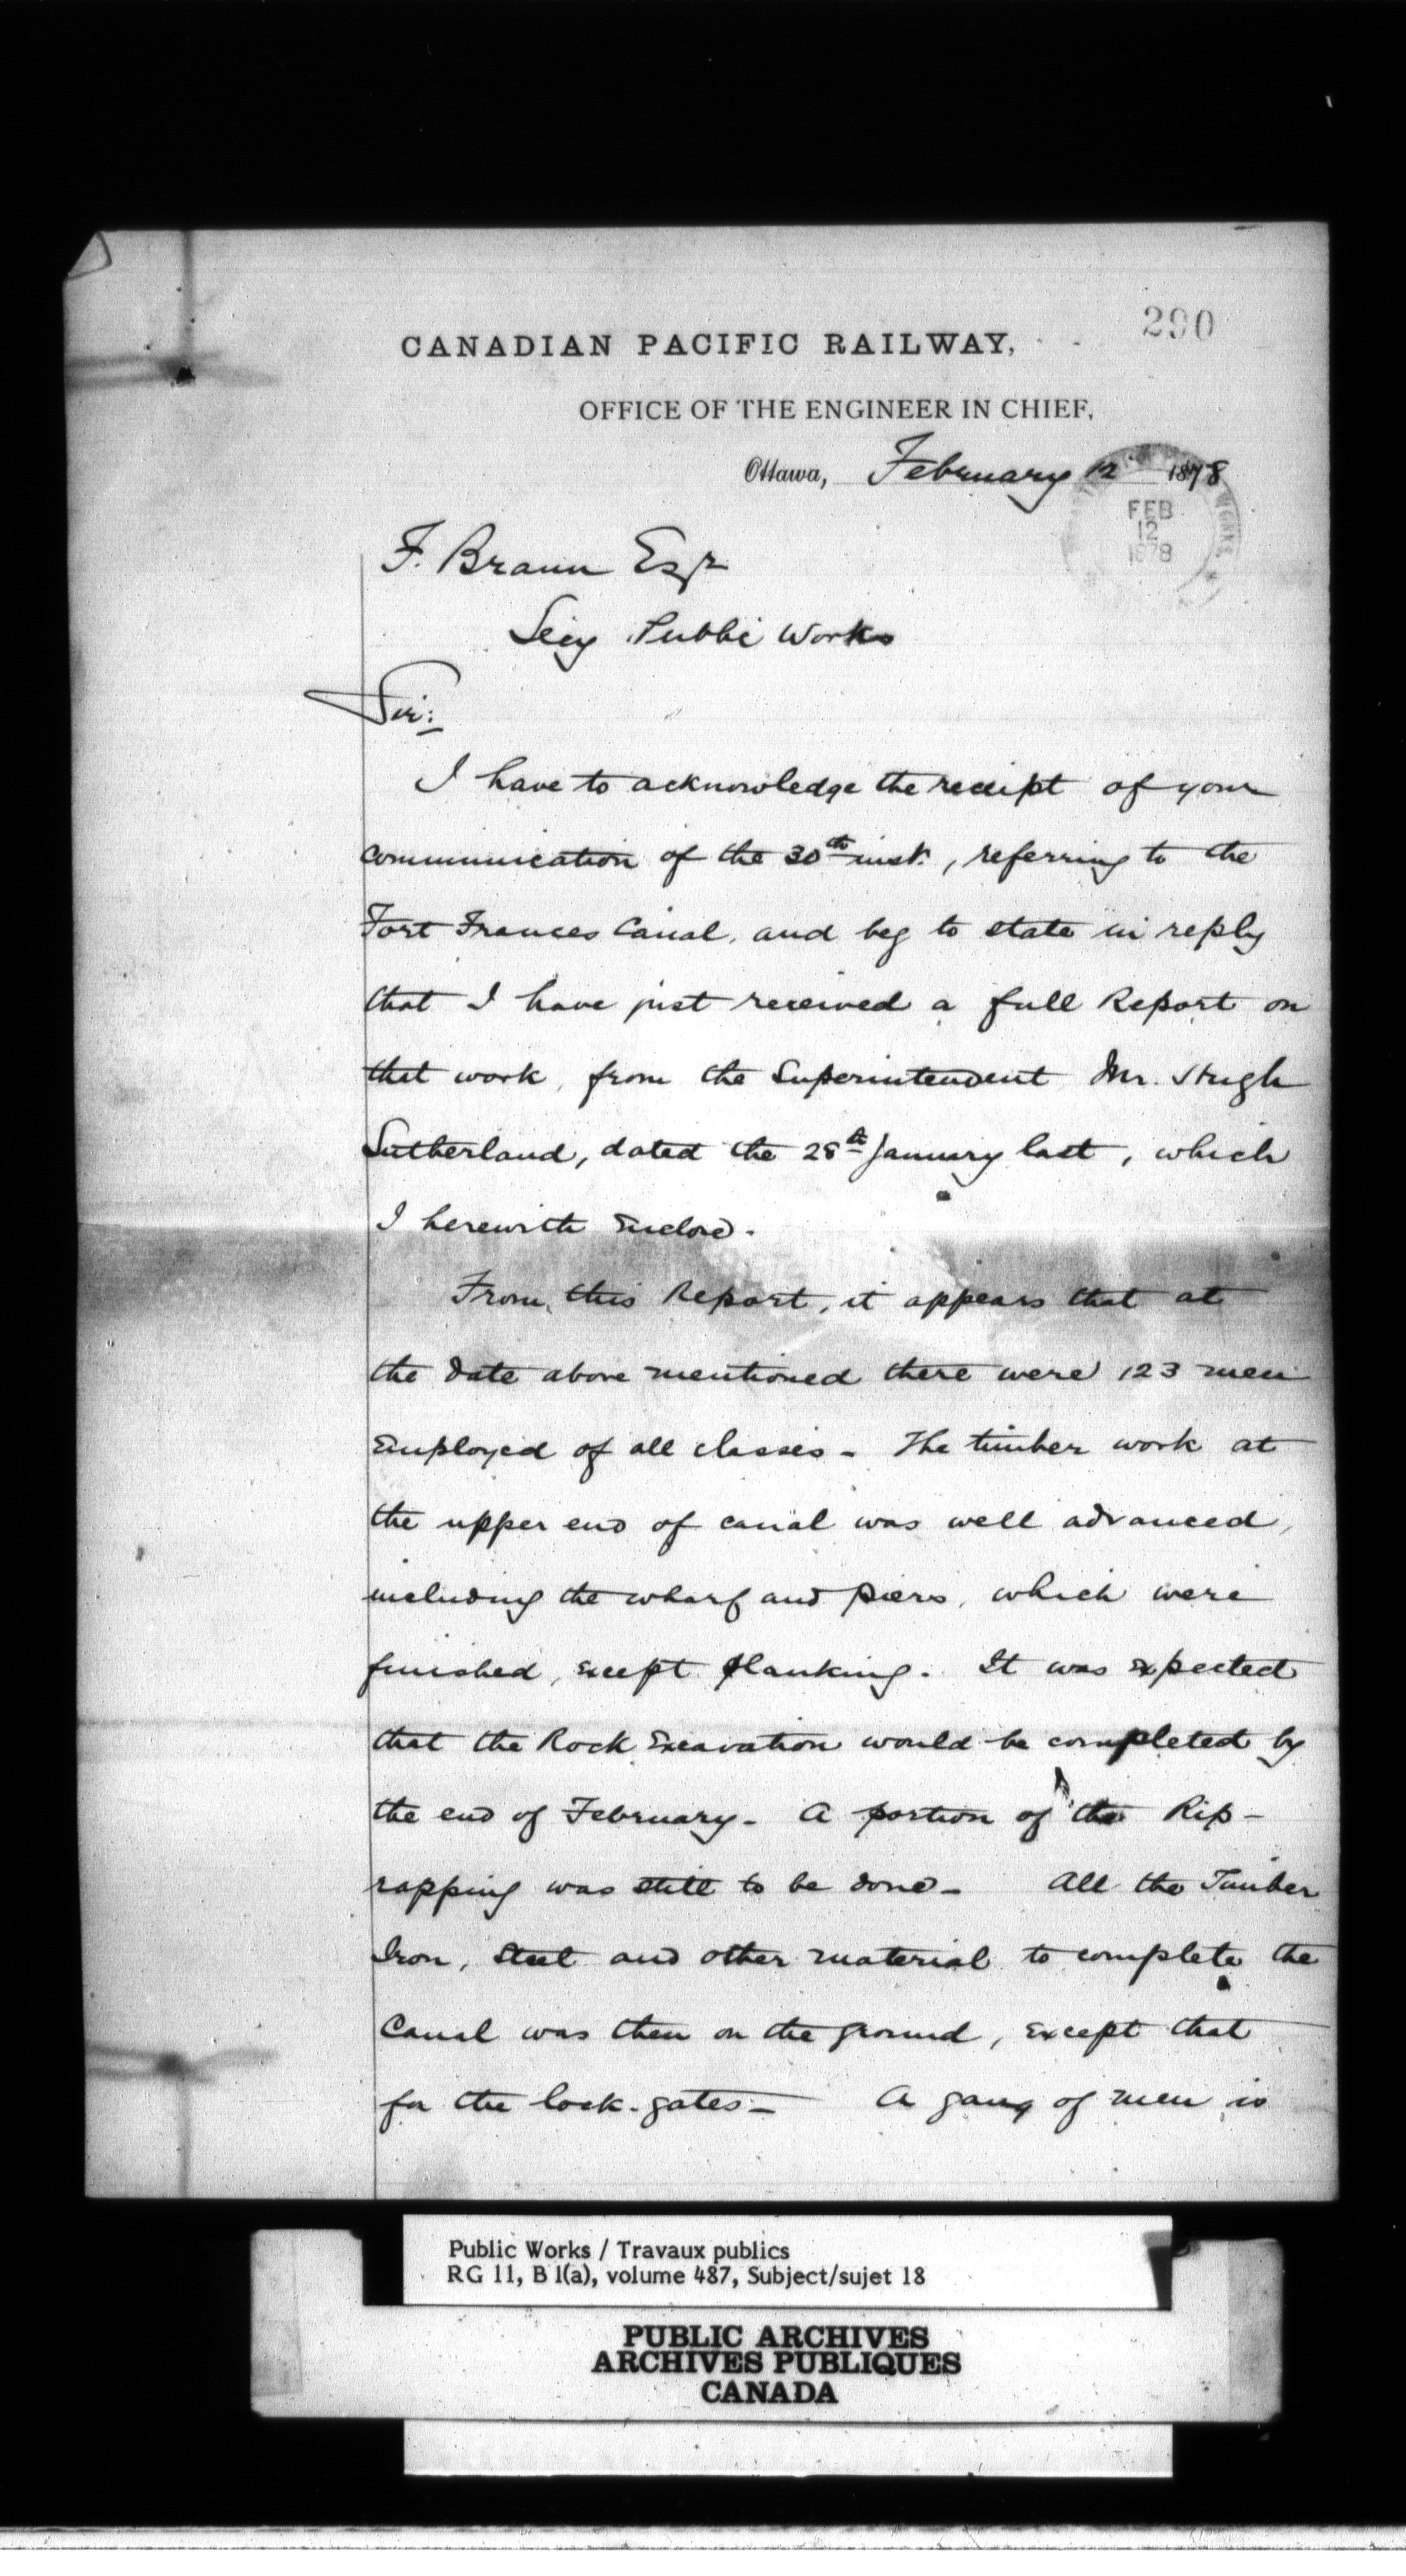 290
CANADIAN PACIFIC RAILWAY,
OFFICE OF THE ENGINEER IN CHIEF,
Ottawa, February 12 1878
FEB
12
1878
F. Braun Esqr
Secy Public Works
Sir:
I have to acknowledge the receipt of your
communication of the 30th inst., referring to the
Fort Frances Canal, and beg to state in reply
that I have just received a full Report on
that work, from the Superintendent Mr. Hugh
Sutherland, dated the 28th January last, which
I herewith Enclose.
From this Report, it appears that at
the date above mentioned there were 123 men
Employed of all classes - The timber work at
the upper end of canal was well advanced,
including the wharf and piers, which were
finished, except planking. It was Expected
that the Rock Excavation would be completed by
the end of February - A portion of the Rip-
rapping was still to be done - All the Timber
Iron, Steel and other material to complete the
Canal was then on the ground, Except that
for the lock-gates - A gang of men is
Public Works / Travaux publics
RG 11, B 1(a), volume 487, Subject/sujet 18
PUBLIC ARCHIVES
ARCHIVES PUBLIQUES
CANADA